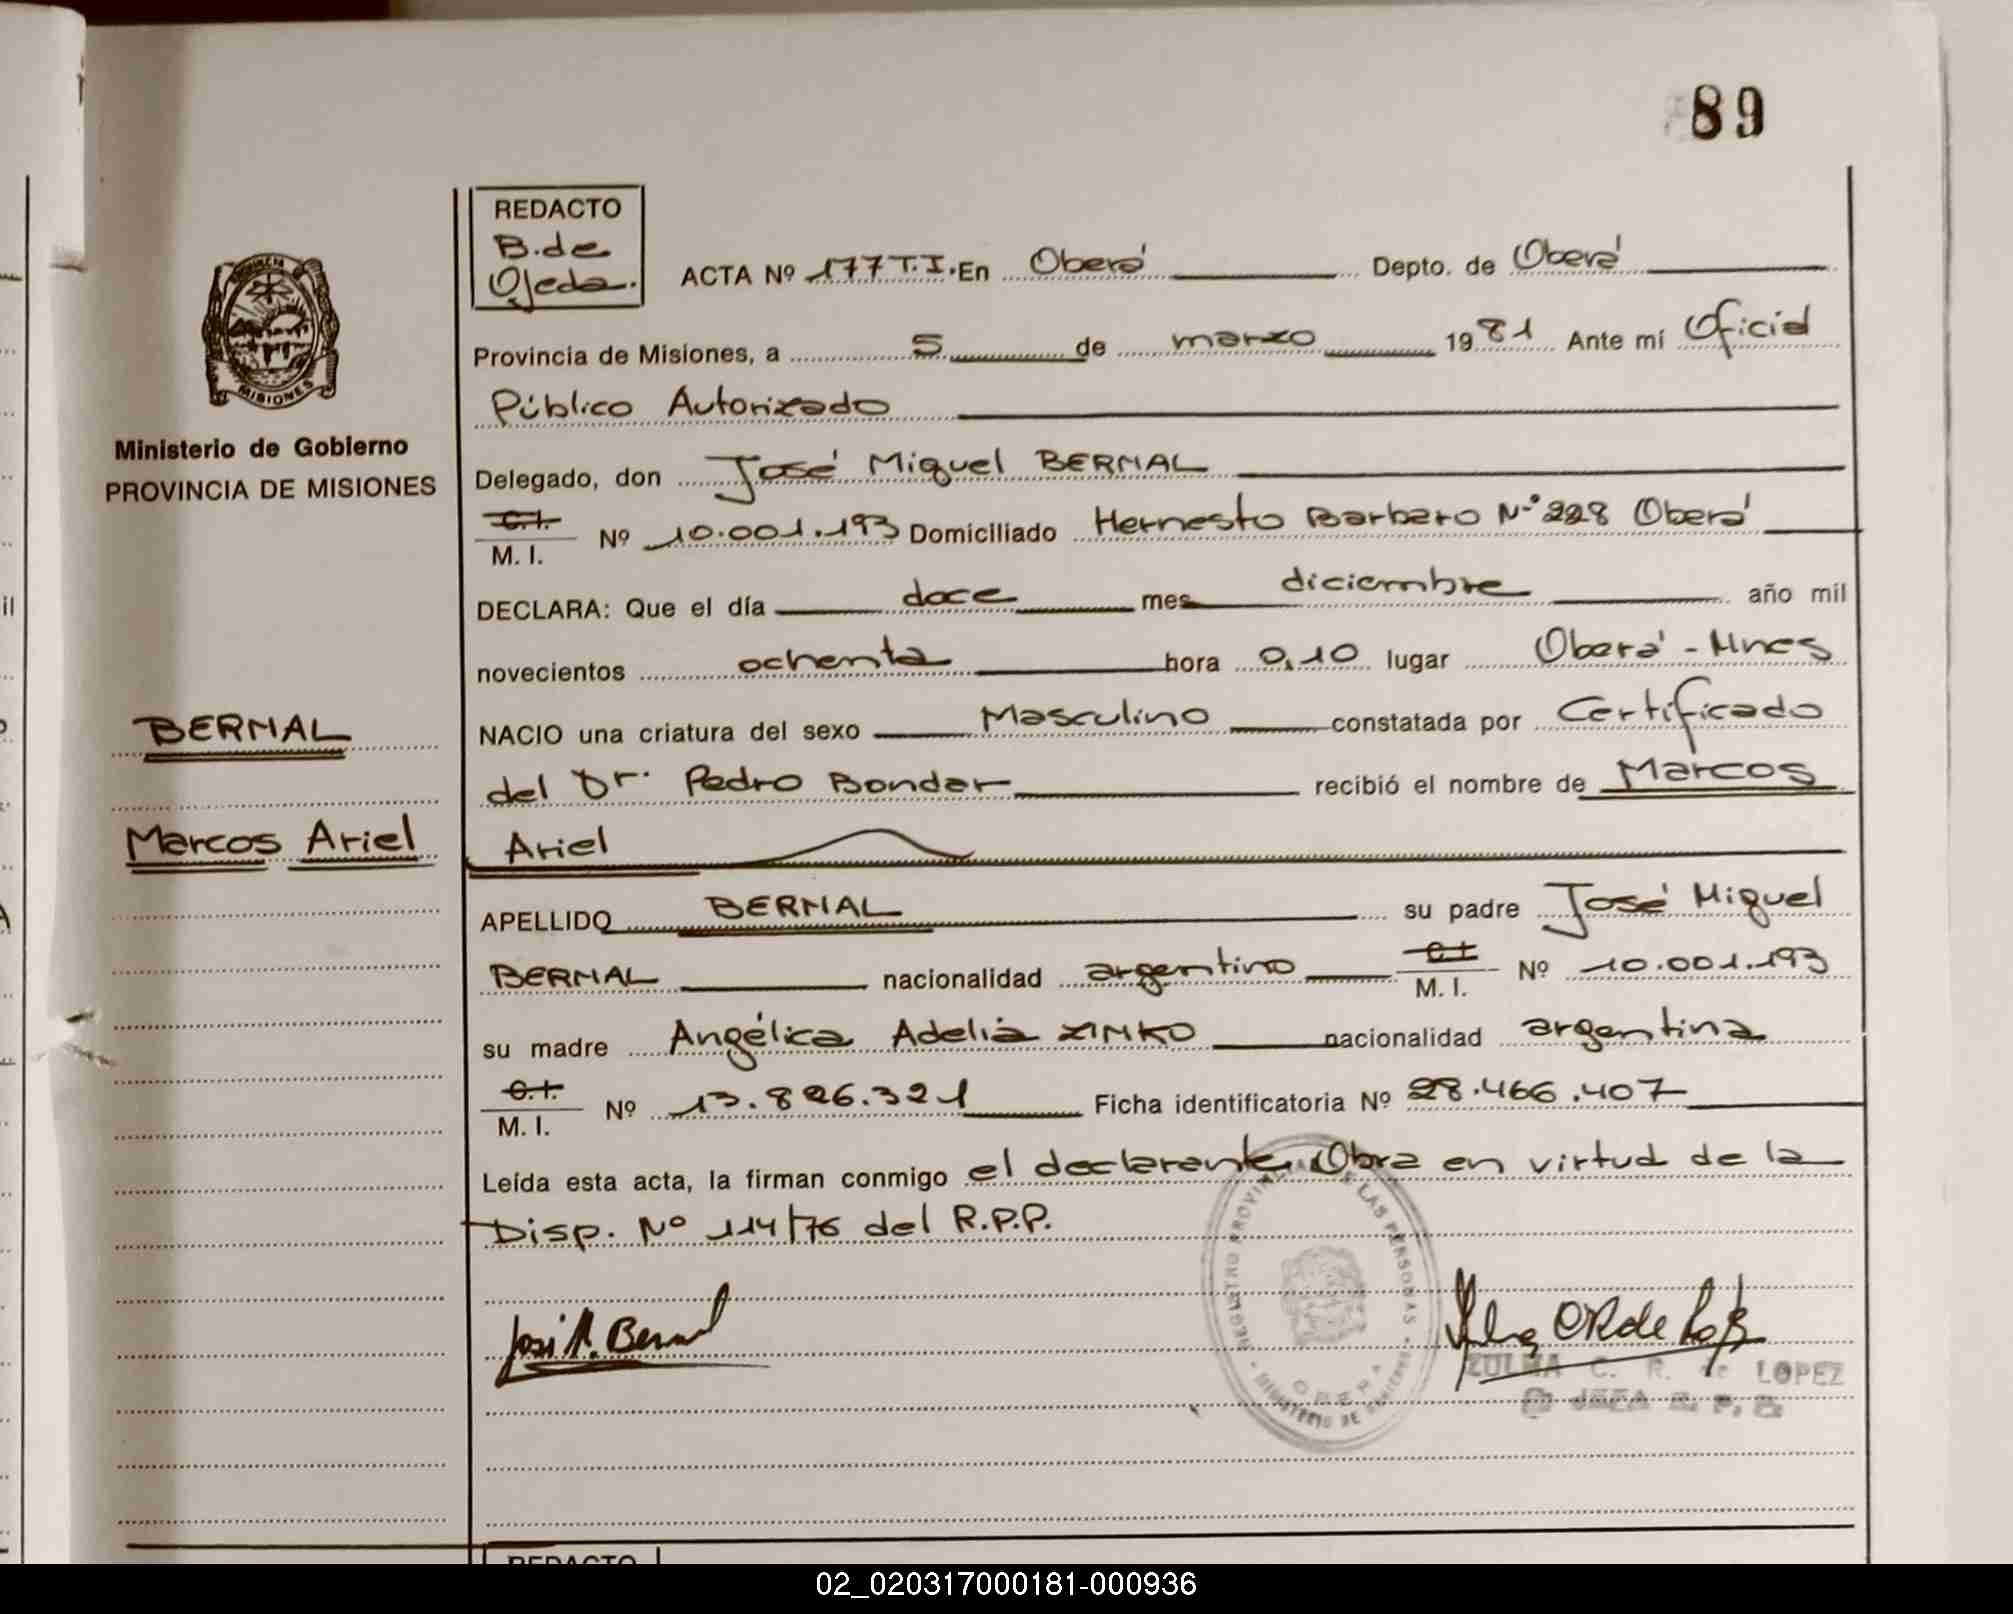 89
REDACTO
B. de
Ojeda.
ACTA Nº 177 T.I. En Oberá Depto. de Oberá
Provincia de Misiones, a 5 de marzo 1981 Ante mí Oficial
Público Autorizado
Ministerio de Gobierno
PROVINCIA DE MISIONES
Delegado, don José Miguel BERNAL
C.I.
M. I. Nº 10.001.193 Domiciliado Hernesto Barbero Nº 228 Oberá
DECLARA: Que el día doce mes diciembre año mil
novecientos ochenta hora 0,10 lugar Oberá - Mnes
BERNAL
NACIO una criatura del sexo Masculino constatada por Certificado
del Dr. Pedro Bondar recibió el nombre de Marcos
Marcos Ariel
Ariel
APELLIDO BERNAL su padre José Miguel
BERNAL nacionalidad argentino C.I. M. I. Nº 10.001.193
su madre Angélica Adelia ZINKO nacionalidad argentina
C.I.
M. I. Nº 13.826.321 Ficha identificatoria Nº 28.466.407
Leída esta acta, la firman conmigo el declarante. Obra en virtud de la
Disp. Nº 114/76 del R.P.P.
REGISTRO PROVINCIAL DE LAS PERSONAS
MINISTERIO DE GOBIERNO
OBERA
MISIONES
José M. Bernal
ZULMA C. R. de LOPEZ
JEFA R. P. P.
REDACTO
02_020317000181-000936